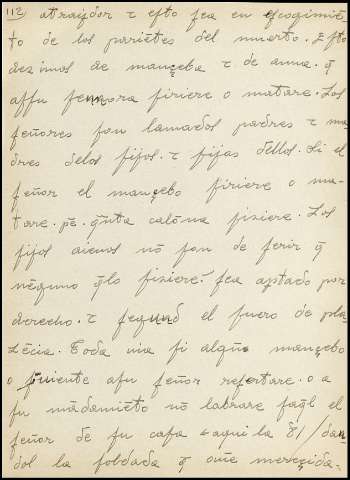 112) atraydor τ esto sea en escogimiē-
to de los pariētes del muerto. Esto
dezimos de mançeba τ de ama. q̄
assu sennora firiere o matare. Los
señores son lamados padres τ ma-
dres delos fijos. τ fijas dellos. Si el
señor el mançebo firiere o ma-
tare. pē. q̄nta calōna fiziere. Los
fijos aienos nō son de ferir q̄
nēguno q̄lo fiziere. sea aptado por
derecho. τ segund el fuero de pla
zēcia. Toda uia si algūo mançebo
o siruiente asu señor refertare. o a
su mādamiēto nō labrare saq̄l el
señor de su casa aqui la 81/dan
dol la soldada q̄ ouie mereçida.